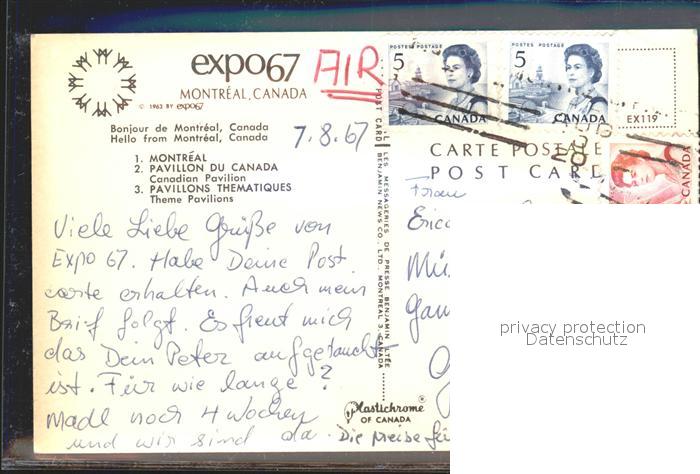 expo67
MONTRÉAL, CANADA
© 1963 BY expo67
AIR
7.8.67
Bonjour de Montréal, Canada
Hello from Montréal, Canada
1. MONTRÉAL
2. PAVILLON DU CANADA
Canadian Pavilion
3. PAVILLONS THEMATIQUES
Theme Pavilions
Viele Liebe Grüße von
Expo 67. Habe Deine Post
carte erhalten. Auch mein
Brief folgt. Es freut mich
das Dein Peter aufgetaucht
ist. Für wie lange?
Madl noch 4 Wochen
und wir sind da. Die
POST CARD
LES MESSAGERIES DE PRESSE BENJAMIN LTÉE
BENJAMIN NEWS CO., LTD. MONTREAL 3, CANADA
Plastichrome®
OF CANADA
POSTES POSTAGE
5
CANADA
POSTES POSTAGE
5
CANADA
EX119
CANADA
CARTE POSTALE
POST CARD
Frau
privacy protection
Datenschutz